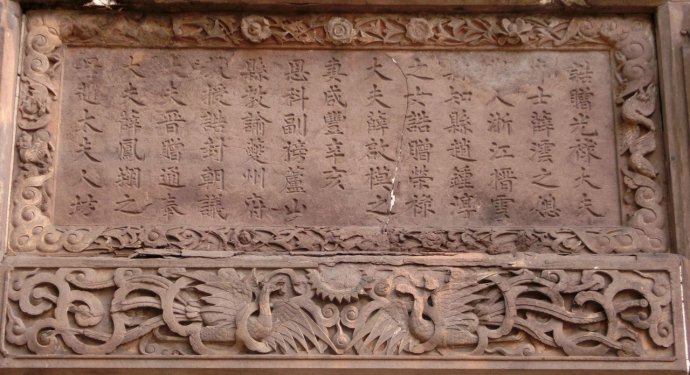 誥贈光祿大夫
士薛雲之媳
人浙江縉雲
縣知縣趙鍾淳
之女誥贈榮祿
大夫薛啟模之
妻咸豐辛亥
恩科副榜蘆山
縣教諭夔州府
教授誥封朝議
大夫晉贈通奉
大夫薛鳳翔之
母趙太夫人坊